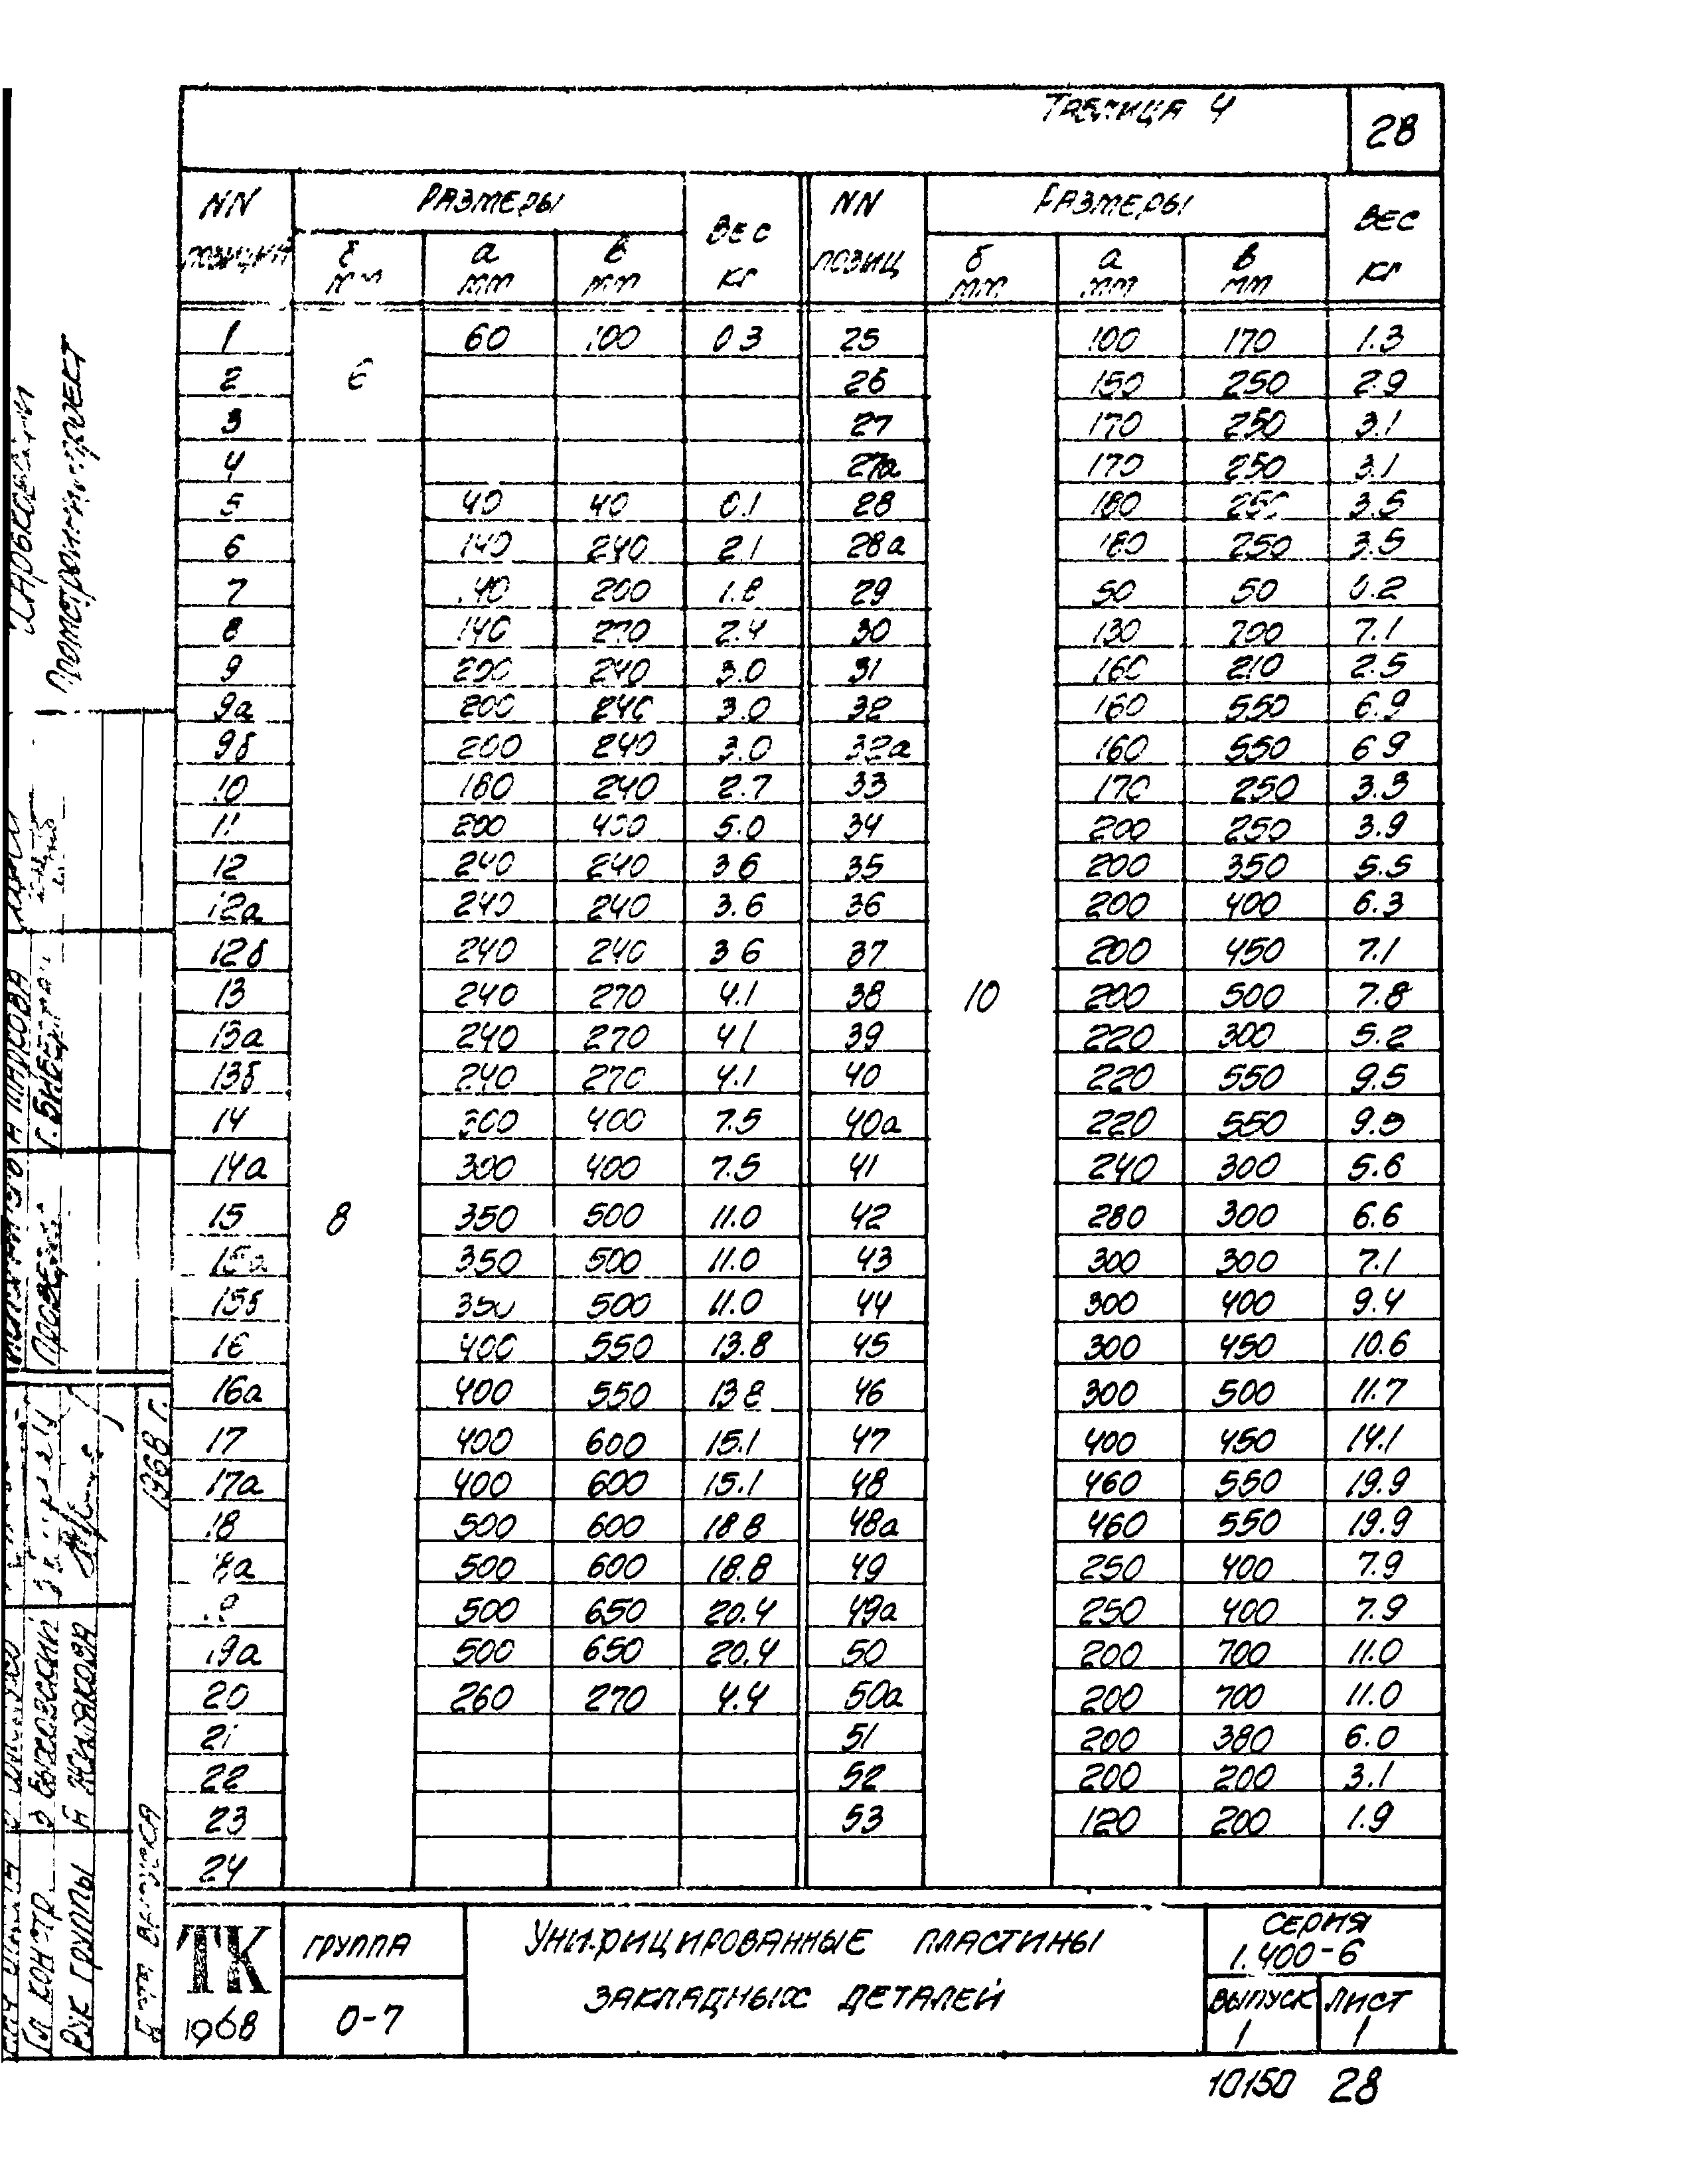 Таблица 4
28
NN позиций | Размеры | Вес кг | NN позиц | Размеры | Вес кг
б мм | а мм | в мм | б мм | а мм | в мм
1 | 6 | 60 | 100 | 0.3 | 25 | 10 | 100 | 170 | 1.3
2 | 26 | 150 | 250 | 2.9
3 | 27 | 170 | 250 | 3.1
4 | 27а | 170 | 250 | 3.1
5 | 8 | 40 | 40 | 0.1 | 28 | 180 | 250 | 3.5
6 | 140 | 240 | 2.1 | 28а | 180 | 250 | 3.5
7 | 140 | 200 | 1.8 | 29 | 50 | 50 | 0.2
8 | 140 | 270 | 2.4 | 30 | 130 | 700 | 7.1
9 | 200 | 240 | 3.0 | 31 | 160 | 210 | 2.5
9а | 200 | 240 | 3.0 | 32 | 160 | 550 | 6.9
9б | 200 | 240 | 3.0 | 32а | 160 | 550 | 6.9
10 | 180 | 240 | 2.7 | 33 | 170 | 250 | 3.3
11 | 200 | 400 | 5.0 | 34 | 200 | 250 | 3.9
12 | 240 | 240 | 3.6 | 35 | 200 | 350 | 5.5
12а | 240 | 240 | 3.6 | 36 | 200 | 400 | 6.3
12б | 240 | 240 | 3.6 | 37 | 200 | 450 | 7.1
13 | 240 | 270 | 4.1 | 38 | 200 | 500 | 7.8
13а | 240 | 270 | 4.1 | 39 | 220 | 300 | 5.2
13б | 240 | 270 | 4.1 | 40 | 220 | 550 | 9.5
14 | 300 | 400 | 7.5 | 40а | 220 | 550 | 9.5
14а | 300 | 400 | 7.5 | 41 | 240 | 300 | 5.6
15 | 350 | 500 | 11.0 | 42 | 280 | 300 | 6.6
15а | 350 | 500 | 11.0 | 43 | 300 | 300 | 7.1
15б | 350 | 500 | 11.0 | 44 | 300 | 400 | 9.4
16 | 400 | 550 | 13.8 | 45 | 300 | 450 | 10.6
16а | 400 | 550 | 13.8 | 46 | 300 | 500 | 11.7
17 | 400 | 600 | 15.1 | 47 | 400 | 450 | 14.1
17а | 400 | 600 | 15.1 | 48 | 460 | 550 | 19.9
18 | 500 | 600 | 18.8 | 48а | 460 | 550 | 19.9
18а | 500 | 600 | 18.8 | 49 | 250 | 400 | 7.9
19 | 500 | 650 | 20.4 | 49а | 250 | 400 | 7.9
19а | 500 | 650 | 20.4 | 50 | 200 | 700 | 11.0
20 | 260 | 270 | 4.4 | 50а | 200 | 700 | 11.0
21 | 51 | 200 | 380 | 6.0
22 | 52 | 200 | 200 | 3.1
23 | 53 | 120 | 200 | 1.9
24
ТК
1968
Группа
0-7
Унифицированные пластины
закладных деталей
Серия
1.400-6
Выпуск
1
Лист
1
10150 28
Харьковский
Промстройниипроект
Н Шаркова
Проверил
Гл. констр
Рук группы
Жилякова
Дата выпуска
1968 г.